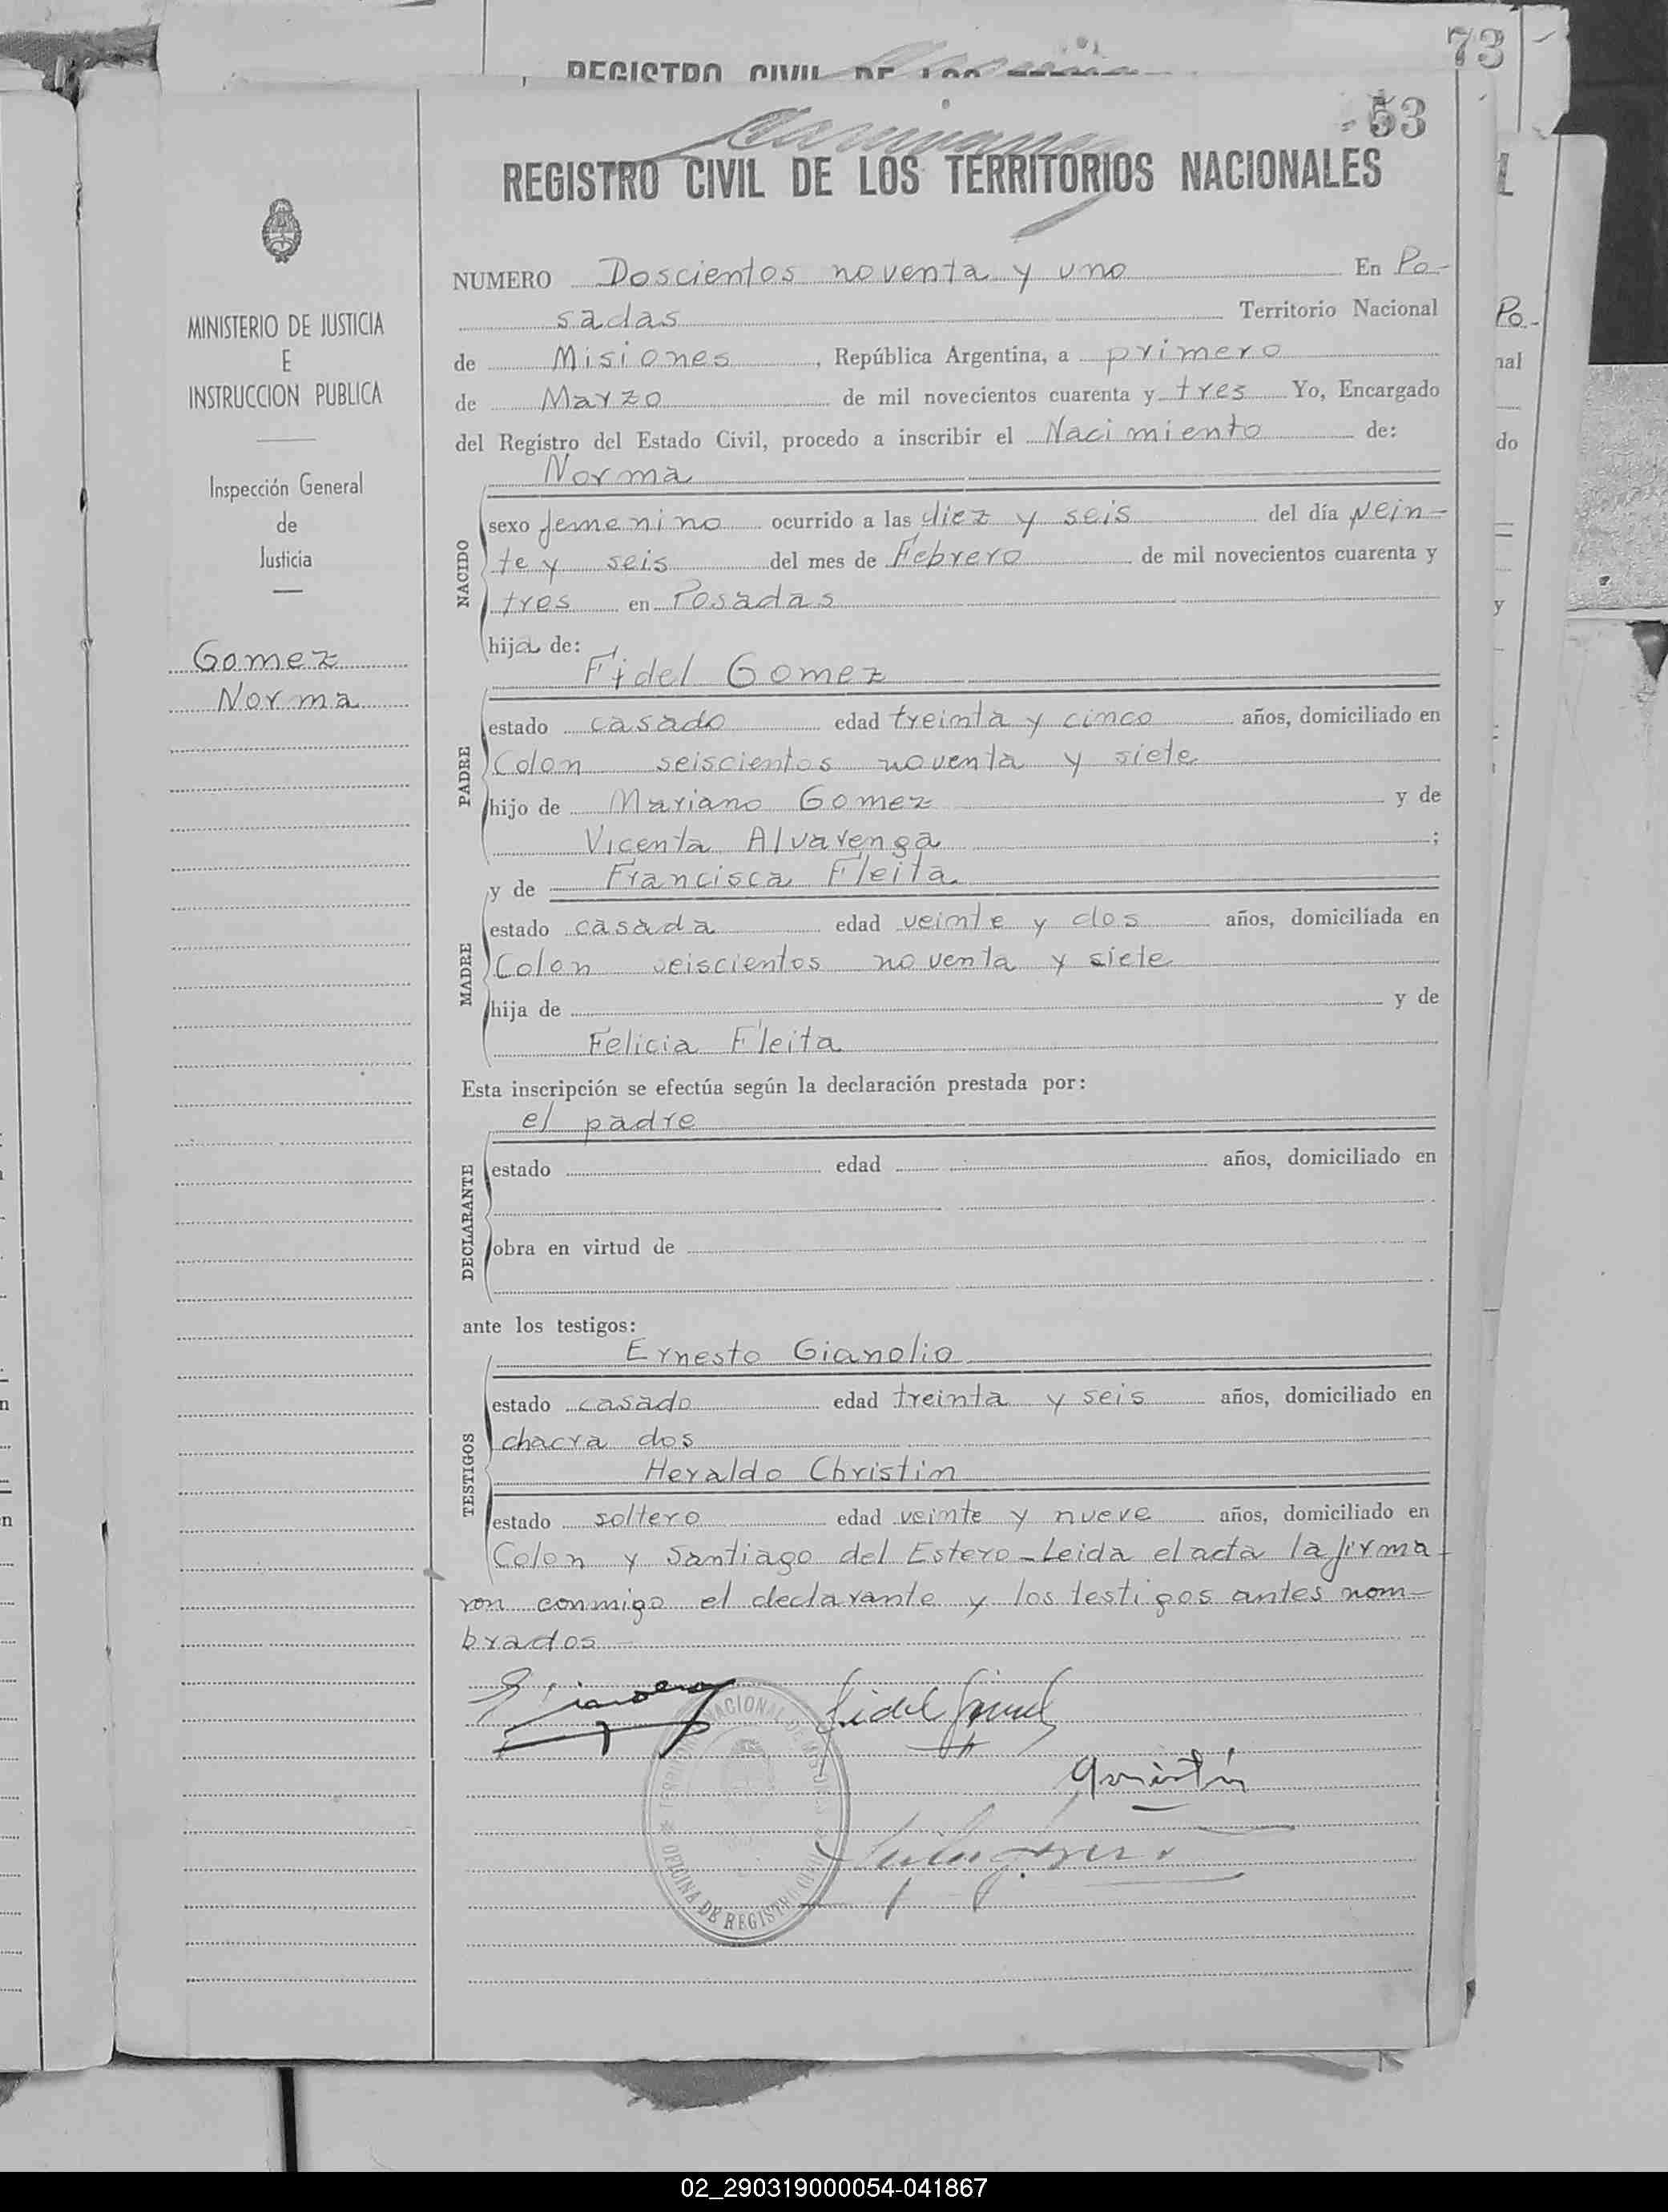 73
REGISTRO CIVIL DE LOS
53
REGISTRO CIVIL DE LOS TERRITORIOS NACIONALES
MINISTERIO DE JUSTICIA
E
INSTRUCCION PUBLICA
Inspección General
de
Justicia
Gomez
Norma
NUMERO Doscientos noventa y uno En Po-
sadas Territorio Nacional
de Misiones, República Argentina, a primero
de Marzo de mil novecientos cuarenta y tres Yo, Encargado
del Registro del Estado Civil, procedo a inscribir el Nacimiento de:
Norma
NACIDO
sexo femenino ocurrido a las diez y seis del día vein-
te y seis del mes de Febrero de mil novecientos cuarenta y
tres en Posadas
hija de:
Fidel Gomez
PADRE
estado casado edad treinta y cinco años, domiciliado en
Colon seiscientos noventa y siete
hijo de Mariano Gomez y de
Vicenta Alvarenga;
y de Francisca Fleita
MADRE
estado casada edad veinte y dos años, domiciliada en
Colon seiscientos noventa y siete
hija de y de
Felicia Fleita
Esta inscripción se efectúa según la declaración prestada por:
el padre
DECLARANTE
estado edad años, domiciliado en
obra en virtud de
ante los testigos:
Ernesto Gianolio
TESTIGOS
estado casado edad treinta y seis años, domiciliado en
chacra dos
Heraldo Christin
estado soltero edad veinte y nueve años, domiciliado en
Colon y Santiago del Estero-Leida el acta la firma-
ron conmigo el declarante y los testigos antes nom-
brados
TERRITORIO NACIONAL DE MISIONES
OFICINA DE REGISTRO CIVIL
02_290319000054-041867